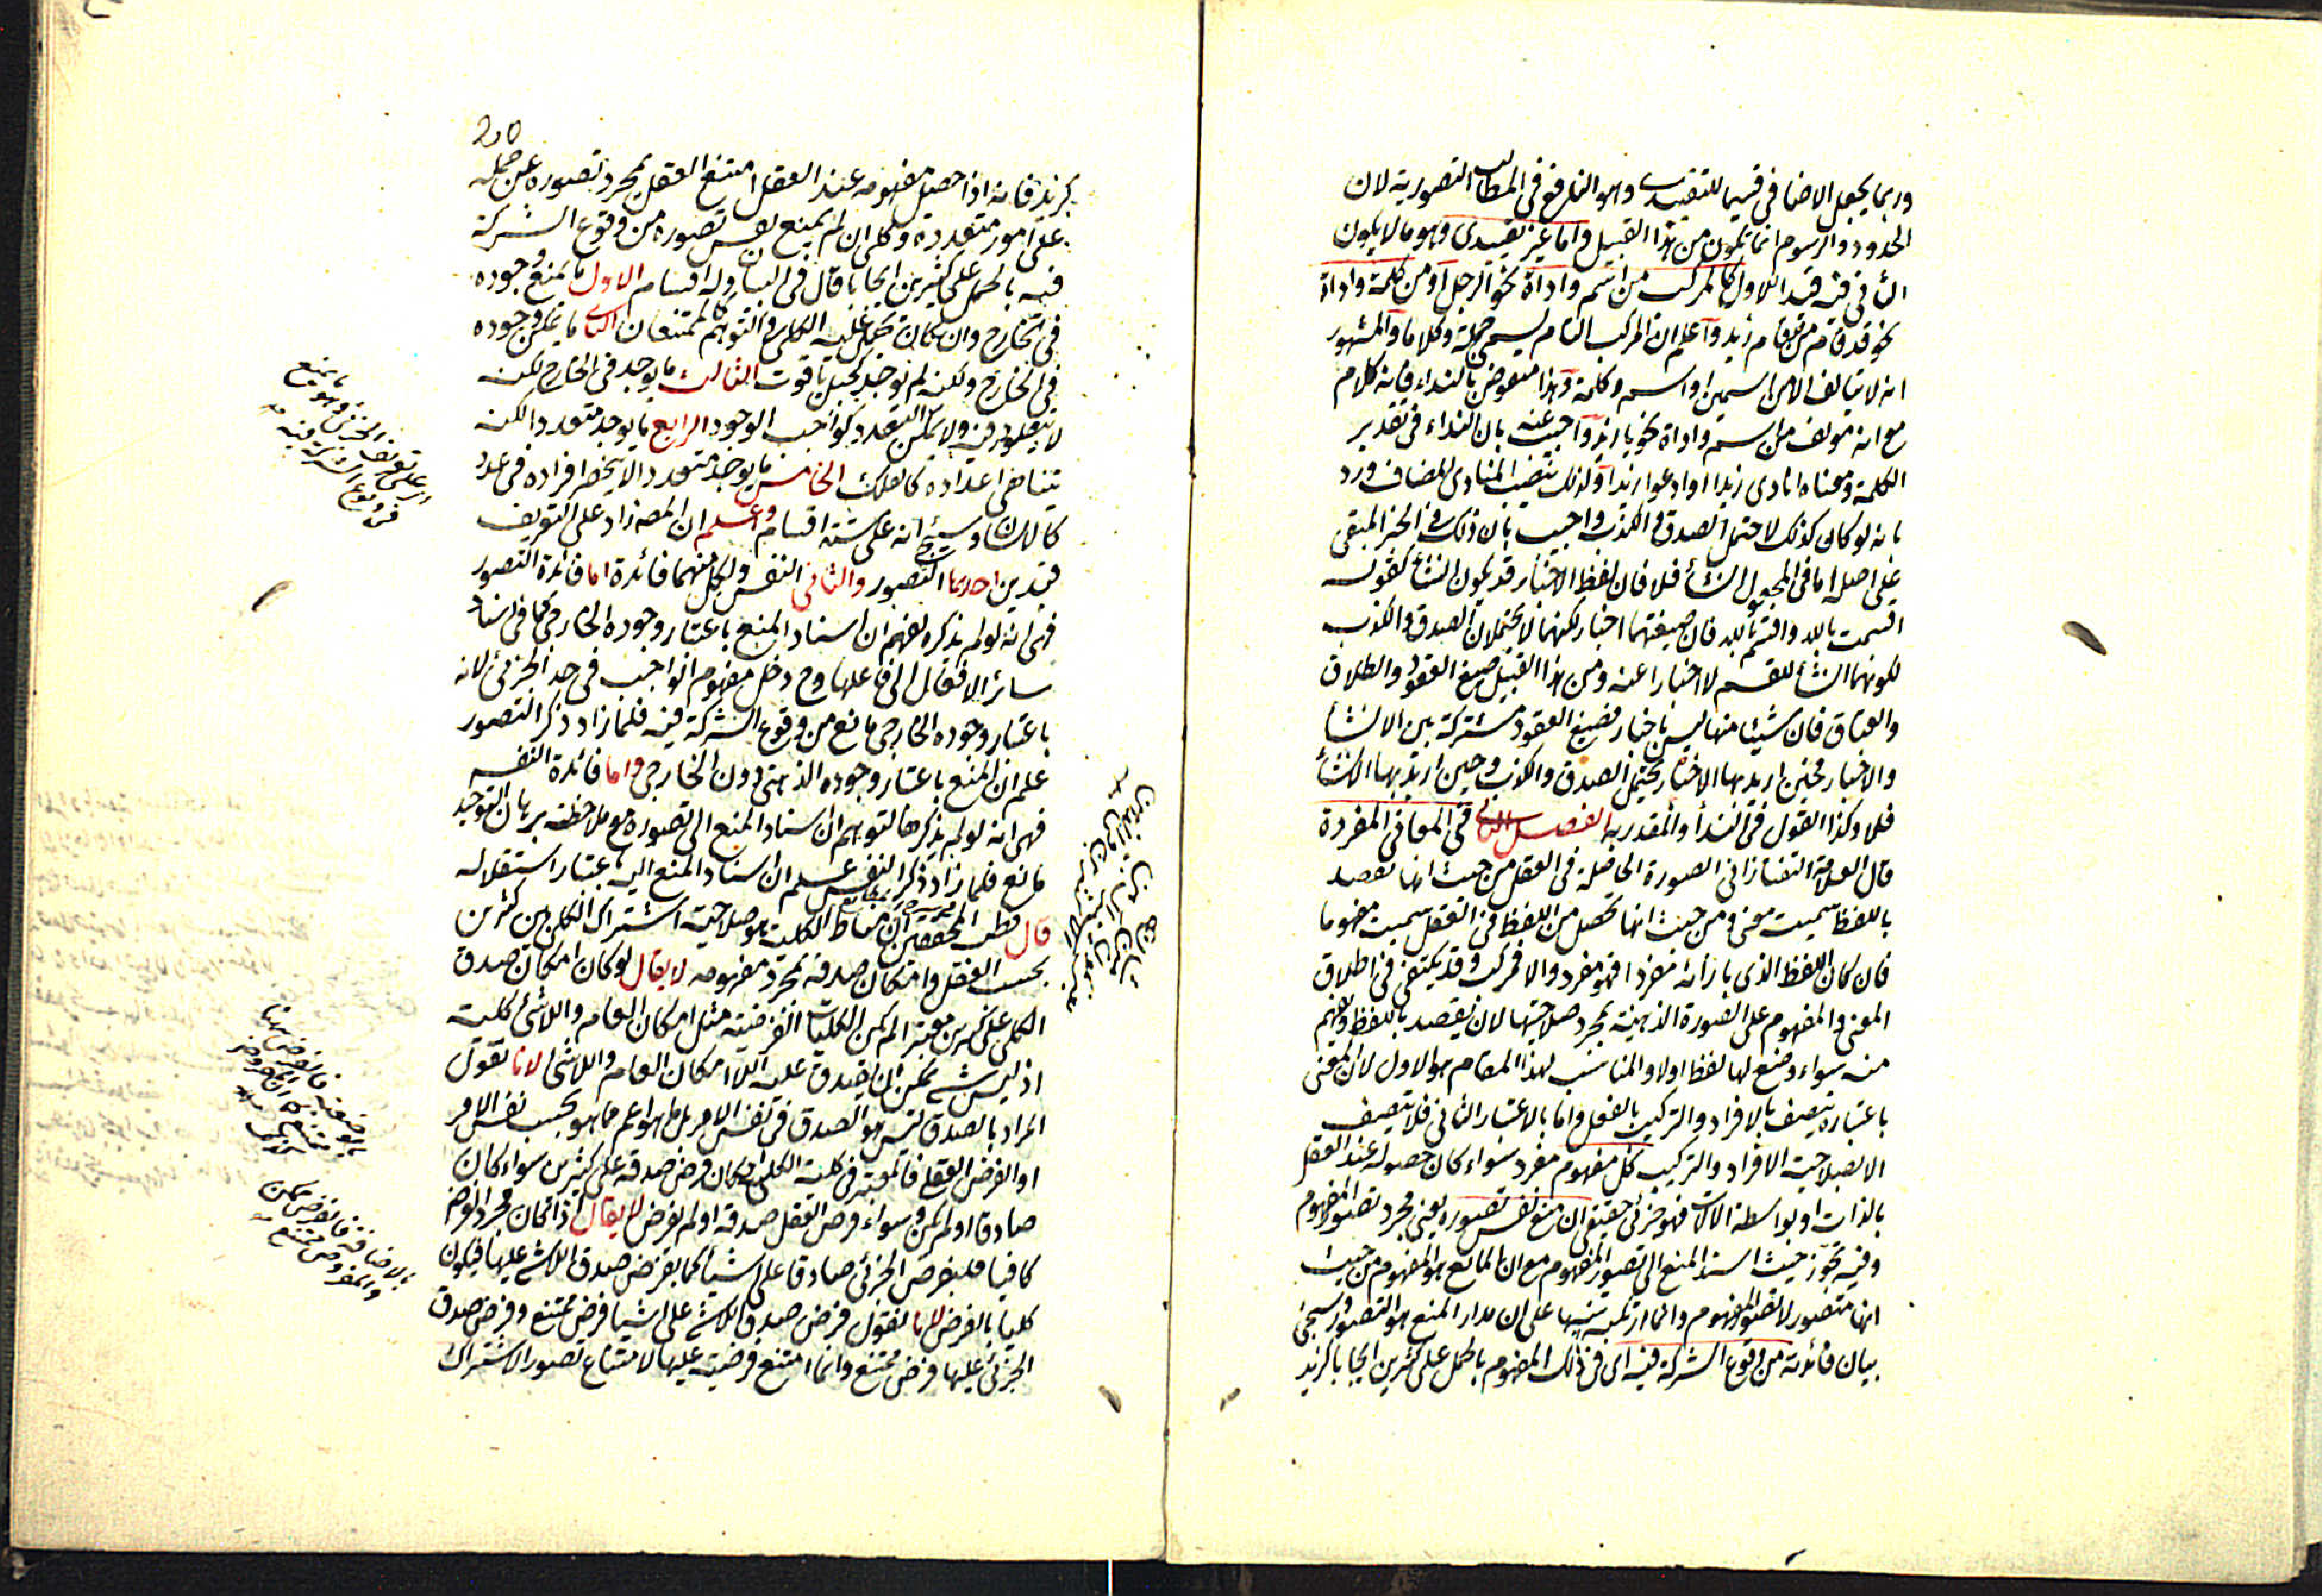 وربما يجعل الاضافى قسيما للتقييدى وهو النافع فى المطالب التصورية لان
الحدود والرسوم انما تكون من هذا القبيل واما غير تقييدى وهو ما لا يكون
الثانى فيه قيد اللاول كالمركب من اسم واداة نحو الرجل او من كلمة واداة
نحو قد قام من قد قام زيد واعلم ان المركب التام يسمى جملة وكلاما والمشهور
انه لا يتألف الا من اسمين او اسم وكلمة وهذا منقوض بالنداء فانه كلام
مع انه مؤلف من اسم واداة نحو يا زيد واجيب عنه بان النداء فى تقدير
الكلمة ومعناه انادى زيدا او ادعوا زيدا ولذلك ينصب المنادى المضاف ورد
بانه لو كان كذلك لاحتمل الصدق والكذب واجيب بان ذلك فى الخبر المبقى
على اصله اما فى المجعول انشأ فلا فان لفظ الاخبار قد يكون انشأ كقوله
اقسمت بالله واقسم بالله فان صيغتهما اخبار لكنهما لا يحتملان الصدق والكذب
لكونهما انشأ للقسم لا اخبارا عنه ومن هذا القبيل صيغ العقود والطلاق
والعتاق فان شيئا منها ليس باخبار فصيغ العقود مشتركة بين الانشأ
والاخبار فحين اريد بها الاخبار يحتمل الصدق والكذب وحين اريد بها الانشأ
فلا وكذا القول فى الندأ والمقدر به الفصل الثانى فى المعانى المفردة
قال العلامة التفتازانى الصورة الحاصلة فى العقل من حيث انها تقصد
باللفظ سميت معنى ومن حيث انها تحصل من اللفظ فى العقل سميت مفهوما
فان كان اللفظ الذى بازائه مفردا فهو مفرد والا فمركب وقد يكتفى فى اطلاق
المعنى والمفهوم على الصورة الذهنية بمجرد صلاحيتها لان يقصد باللفظ ويفهم
منه سواء وضع لها لفظ اولا والمناسب لهذا المقام هو الاول لان المعنى
باعتباره يتصف بالافراد والتركيب بالفعل واما بالاعتبار الثانى فلا يتصف
الا بصلاحية الافراد والتركيب كل مفهوم مفرد سواء كان حصوله عند العقل
بالذات او بواسطة الالات فهو جزئى حقيقى ان منع نفس تصوره يعنى مجرد تصور المفهوم
وفيه تجوز حيث اسند المنع الى تصور المفهوم مع ان المانع هو المفهوم من حيث
انها متصور لا تصور المفهوم وانما ارتكبه تنبيها على ان مدار المنع هو التصور وسيجئ
بيان فائدته من وقوع الشركة فيه اى فى ذلك المفهوم بالحمل على كثيرين ايجابا كزيد
كزيد فانه اذا حصل مفهومه عند العقل امتنع العقل بمجرد تصوره عن حمله
على امور متعددة وكلى ان لم يمنع نفس تصوره من وقوع الشركة
فيه بالحمل على كثيرين ايجابا قال فى وله اقسام الاول ما يمتنع وجوده
فى الخارج وان كان الثانى ما يمكن وجوده
فى الخارج ولكن لم يوجد كجبل ياقوت الثالث ما يوجد فى الخارج لكن
لا يتعدد فيه ولا يمكن التعدد كواجب الوجود الرابع ما يوجد متعددا لكن
تتناهى اعداده كالفلك الخامس ما يوجد متعددا لا ينحصر افراده فى عدد
كالانسان وسيجئ انه على ستة اقسام واعلم ان المصه زاد على التعريف
قيدين احدهما التصور والثانى النفس ولكل منهما فائدة اما فائدة التصور
فهى انه لو لم يذكره لفهم ان اسناد المنع باعتبار وجوده الخارجى كما فى اسناد
سائر الافعال الى فاعلها وح دخل مفهوم الواجب فى حد الجزئى لانه
باعتبار وجوده الخارجى مانع من وقوع الشركة فيه فلما زاد ذكر التصور
علم ان المنع باعتبار وجوده الذهنى دون الخارجى واما فائدة النفس
فهى انه لو لم يذكرها لتوهم ان اسناد المنع الى تصوره مع ملاحظة برهان التوحيد
مانع فلما زاد ذكر النفس علم ان اسناد المنع اليه باعتبار استقلاله
قال المحققين ان مناط الكلية هو صلاحية اشتراك الكلى بين كثيرين
بحسب العقل وامكان صدقه بمجرد مفهومه لا يقال لو كان امكان صدق
الكلى على كثيرين معتبرا لم يكن الكليات الفرضية مثل الامكان العام واللاشئ كلية
اذ ليس شئ يمكن ان يصدق عليه اللا امكان العام واللاشئ لانا نقول
المراد بالصدق ليس هو الصدق فى نفس الامر بل ما هو اعم مما هو بحسب نفس الامر
او الفرض العقلى فالمعتبر فى كلية الكلى امكان فرض صدقه على كثيرين سواء كان
صادقا او لم يكن وسواء فرض العقل صدقه او لم يفرض لا يقال اذا كان مجرد الفرض
كافيا فليفرض الجزئى صادقا على اشيأ كما يفرض صدق اللاشئ عليها فيكون
كليا بالفرض لانا نقول فرض صدق اللاشئ على اشيا فرض ممتنع وفرض صدق
الجزئى عليها فرض ممتنع وانما امتنع فرضيته عليها لامتناع تصور الاشتراك